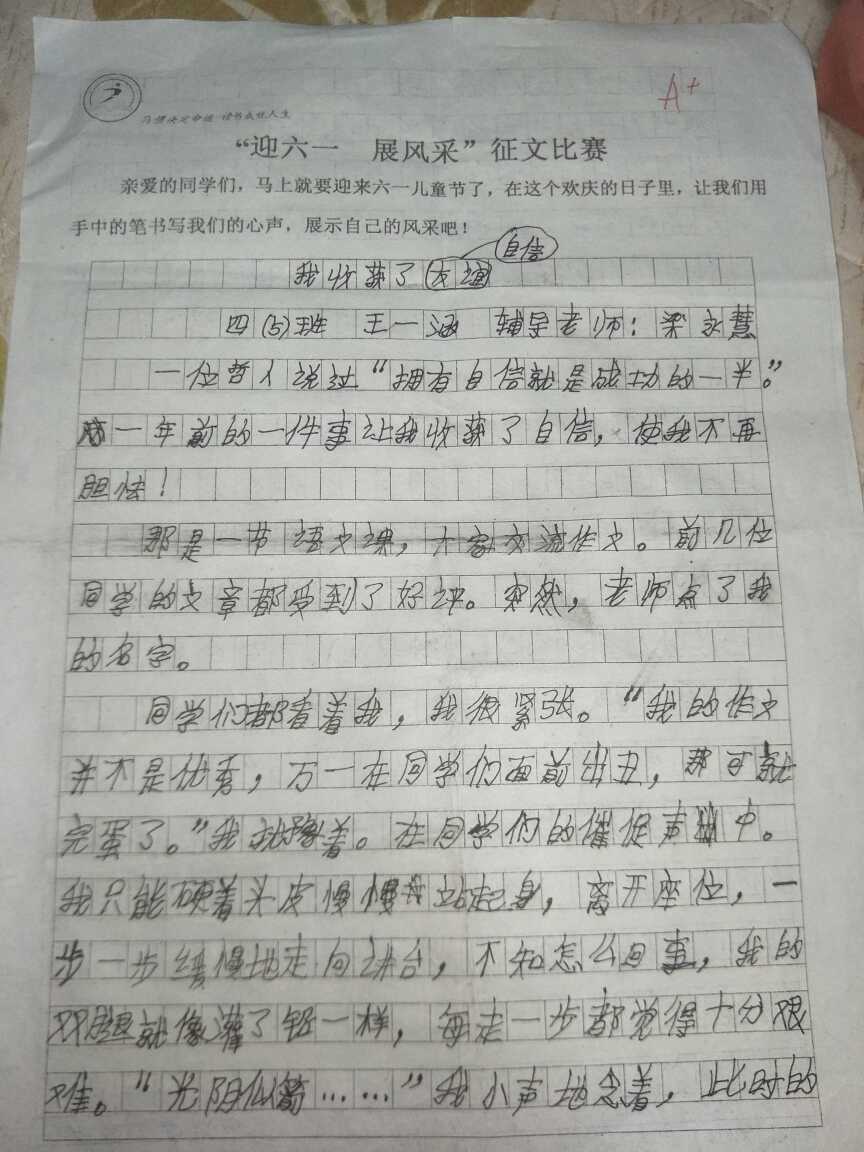 习惯决定命运 读书成就人生
A+
“迎六一 展风采”征文比赛
亲爱的同学们，马上就要迎来六一儿童节了，在这个欢庆的日子里，让我们用
手中的笔书写我们的心声，展示自己的风采吧！
自信
我收获了友谊
四(5)班 王一涵 辅导老师：梁永慧
一位哲人说过“拥有自信就是成功的一半。”
一年前的一件事让我收获了自信，使我不再
胆怯！
那是一节语文课，大家交流作文。前几位
同学的文章都受到了好评。突然，老师点了我
的名字。
同学们都看着我，我很紧张。“我的作文
并不是优秀，万一在同学们面前出丑，那可就
完蛋了。”我犹豫着。在同学们的催促声中。
我只能硬着头皮慢慢站起身，离开座位，一
步一步缓慢地走向讲台，不知怎么回事，我的
双腿就像灌了铅一样，每走一步都觉得十分艰
难。“光阴似箭……”我小声地念着，此时的